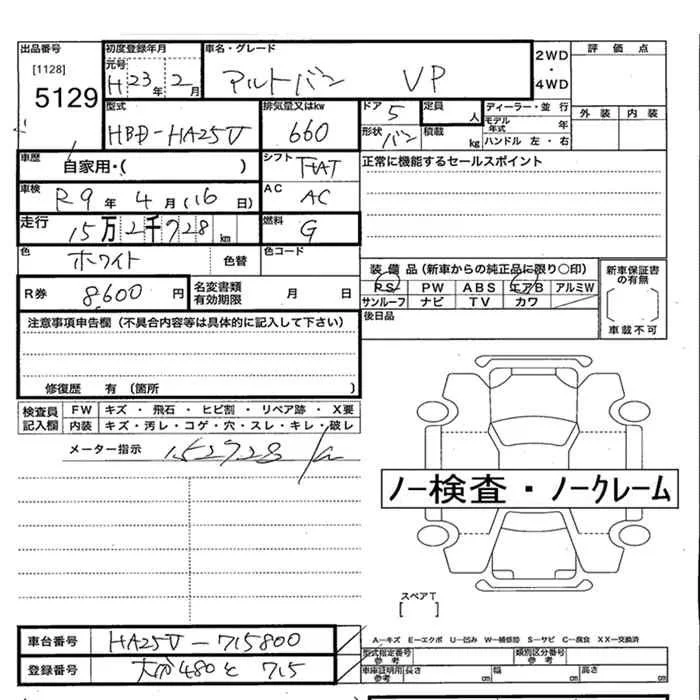 出品番号 初度登録年月 車名・グレード 2WD・4WD 評価点
[1128] 元号 H23年 2月 アルトバン VP
5129 外装 内装
型式 排気量又はkw ドア 5 定員 人 ディーラー・並行
HBD-HA25V 660 形状 バン 積載 kg モデル年式 年
ハンドル 左・右
車歴 自家用・( ) シフト FAT 正常に機能するセールスポイント
車検 R9年 4月(16日) AC AC
走行 15万2千728km 燃料 G
色 ホワイト 色替 色コード
装備品(新車からの純正品に限り○印) 新車保証書の有無
R券 8,600円 名変書類有効期限 月 日 PS PW ABS エアB アルミW
サンルーフ ナビ TV カワ 車載不可
注意事項申告欄(不具合内容等は具体的に記入して下さい) 後日品
修復歴 有 (箇所 )
検査員記入欄 FW キズ・飛石・ヒビ割・リペア跡・X要
内装 キズ・汚レ・コゲ・穴・スレ・キレ・破レ
メーター指示 152728
ノー検査・ノークレーム
スペアT
[ ]
車台番号 HA25V-715800 A―キズ E―エクボ U―凹み W―補修跡 S―サビ C―腐食 XX―交換済
型式指定番号 参考 類別区分番号 参考
登録番号 大分480と 715 車庫証明用 参考 長さ cm 幅 cm 高さ cm